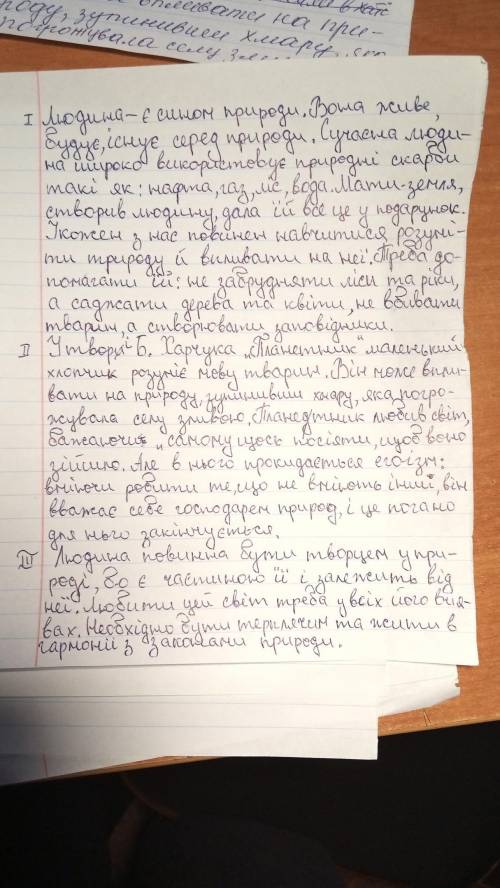 роду, зупинивши хмару, яка
I Людина-є сином природи. Вона живе,
будує, існує серед природи. Сучасна люди-
на широко використовує природні скарби
такі як: нафта, газ, ліс, вода. Мати-земля,
створив людину, дала їй все це у подарунок.
І кожен з нас повинен навчитися розумі-
ти природу й впливати на неї. Треба до-
помагати їй: не забрудняти ліси та ріки,
а саджати дерева та квіти, не вбивати
тварин, а створювати заповідники.
II У творі Б. Харчука „Планетник" маленький
хлопчик розуміє мову тварин. Він може впли-
вати на природу, зупинивши хмару, яка погро-
жувала селу зливою. Планетник любив світ,
бажаючи „самому щось посіяти, щоб воно
зійшло. Але в нього прокидається егоїзм:
вміючи робити те, що не вміють інші, він
вважає себе господарем природ, і це погано
для нього закінчується.
III Людина повинна бути творцем у при-
роді, бо є частиною її і залежить від
неї. Любити цей світ треба у всіх його вия-
вах. Необхідно бути терплячим та жити в
гармонії з законами природи.